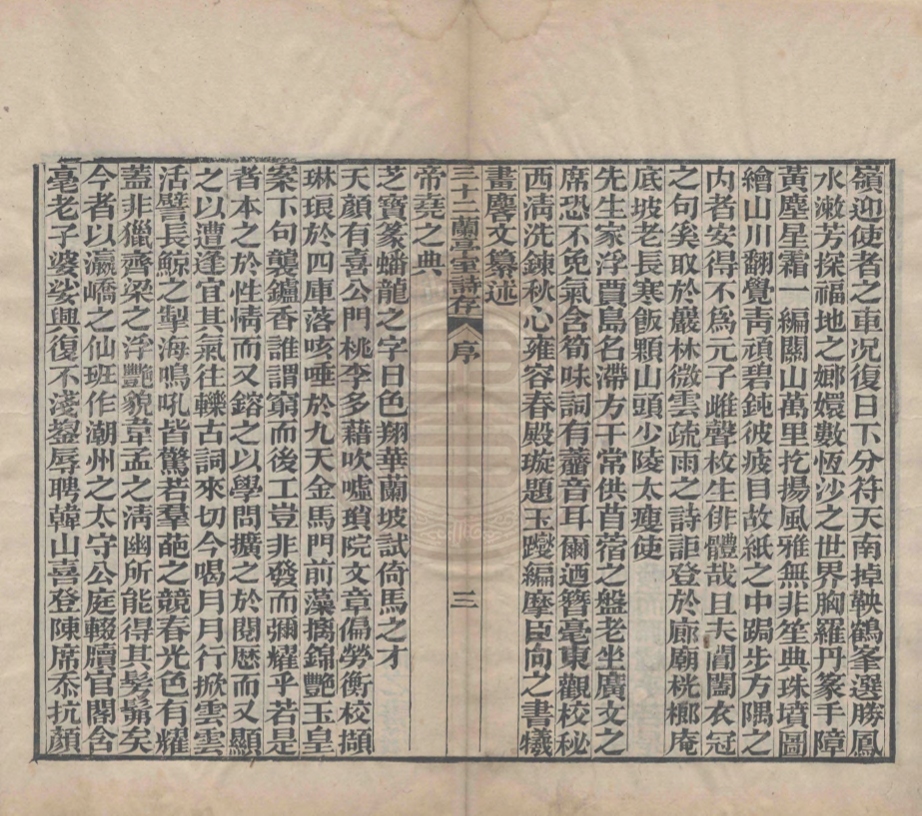 嶺迎使者之車况復日下分符天南掉鞅鶴峯選勝鳳
水漱芳探福地之嫏嬛數恆沙之世界胸羅丹篆手障
黃塵星霜一編關山萬里扢揚風雅無非笙典珠墳圖
繪山川翻覺靑頑碧鈍彼疲目故紙之中跼步方隅之
内者安得不爲元子雌聲枚生俳體哉且夫閶闔衣冠
之句奚取於巖林微雲疏雨之詩詎登於廊廟桄榔庵
底坡老長寒飯顆山頭少陵太瘦使
先生家浮賈島名滯方干常供苜蓿之盤老坐廣文之
席恐不免氣含筍味詞有虀音耳爾迺簪毫東觀校秘
西淸洗鍊秋心雍容春殿璇題玉躞編摩臣向之書犧
畫麐文纂述
三十二蘭亭室詩存 序 三
帝堯之典
芝寶篆蟠龍之字日色翔華蘭坡試倚馬之才
天顏有喜公門桃李多藉吹噓瑣院文章偏勞衡校擷
琳琅於四庫落咳唾於九天金馬門前藻摛錦艷玉皇
案下句襲鑪香誰謂窮而後工豈非發而彌耀乎若是
者本之於性情而又鎔之以學問擴之於閱歷而又顯
之以遭逢宜其氣往轢古詞來切今喝月月行掀雲雲
活譬長鯨之掣海鳴吼皆驚若羣葩之競春光色有耀
蓋非獵齊梁之浮艷貌韋孟之淸幽所能得其髣髴矣
今者以瀛嶠之仙班作潮州之太守公庭輟牘官閣含
毫老子婆娑興復不淺鋆辱聘韓山喜登陳席忝抗顏